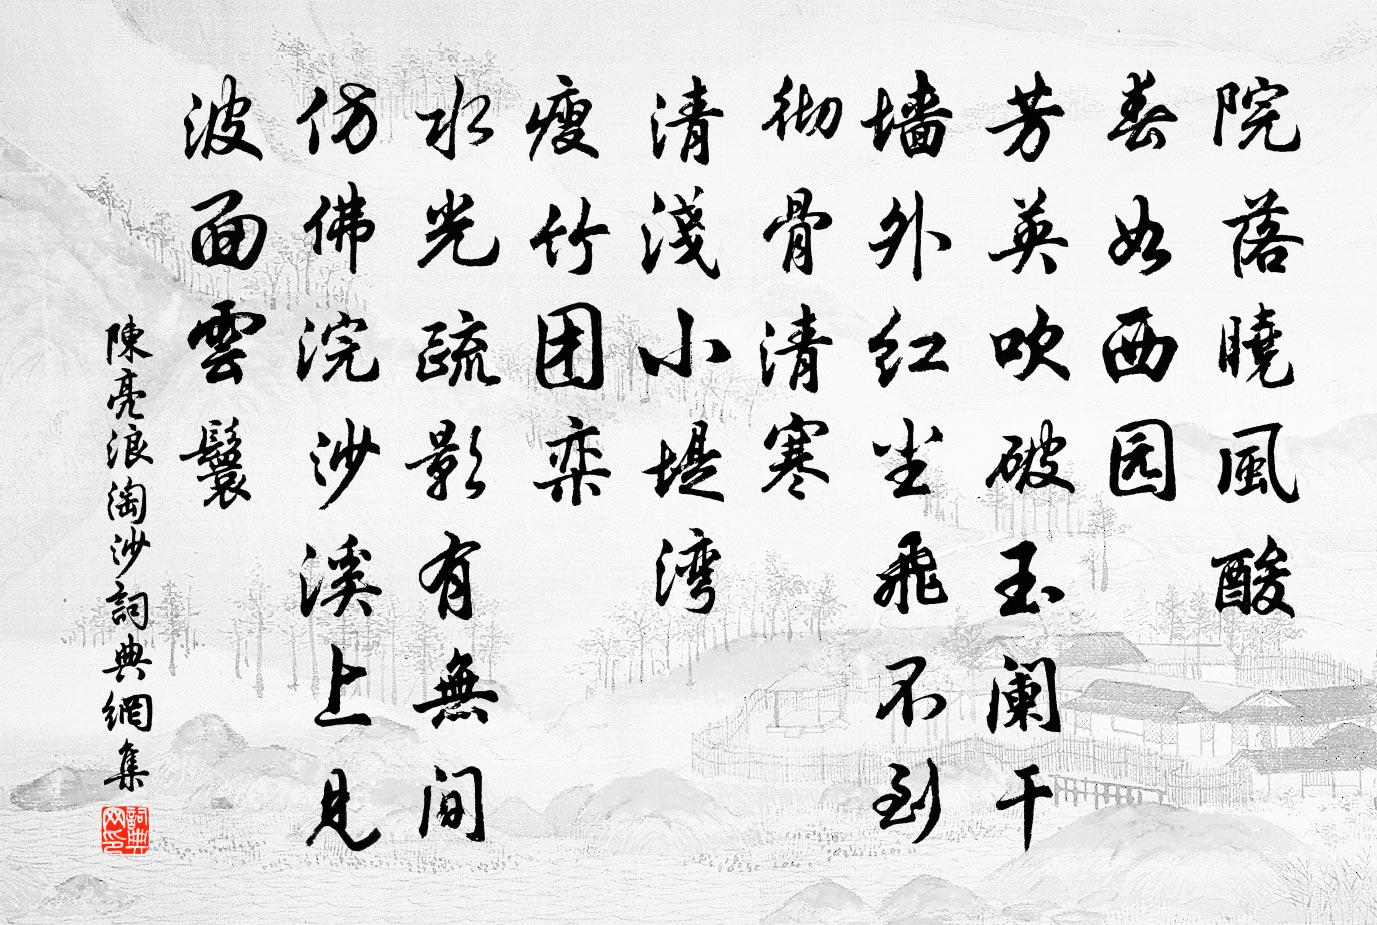 院落曉風酸
春如西园
芳英吹破玉阑干
墙外红尘飛不到
彻骨清寒
清淺小堤湾
瘦竹团栾
水光疏影有無間
仿佛浣沙溪上見
波面雲鬟
陳亮浪淘沙詞典網集
詞典网印